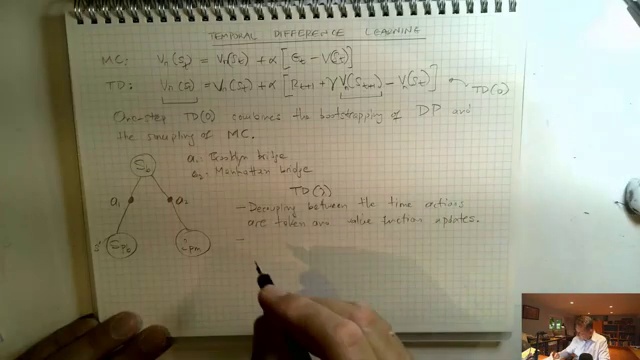 TEMPORAL DIFFERENCE LEARNING
MC: Vπ(St) = Vπ(St) + α [Gt - V(St)]
TD: Vπ(St) = Vπ(St) + α [Rt+1 + γ Vπ(St+1) - Vπ(St)]
TD(0)
One-step TD(0) combines the bootstrapping of DP and
the sampling of MC.
Sb
a1: Brooklyn bridge
a2: Manhattan bridge
a1
a2
TD(λ)
- Decoupling between the time actions
are taken and value function updates.
-